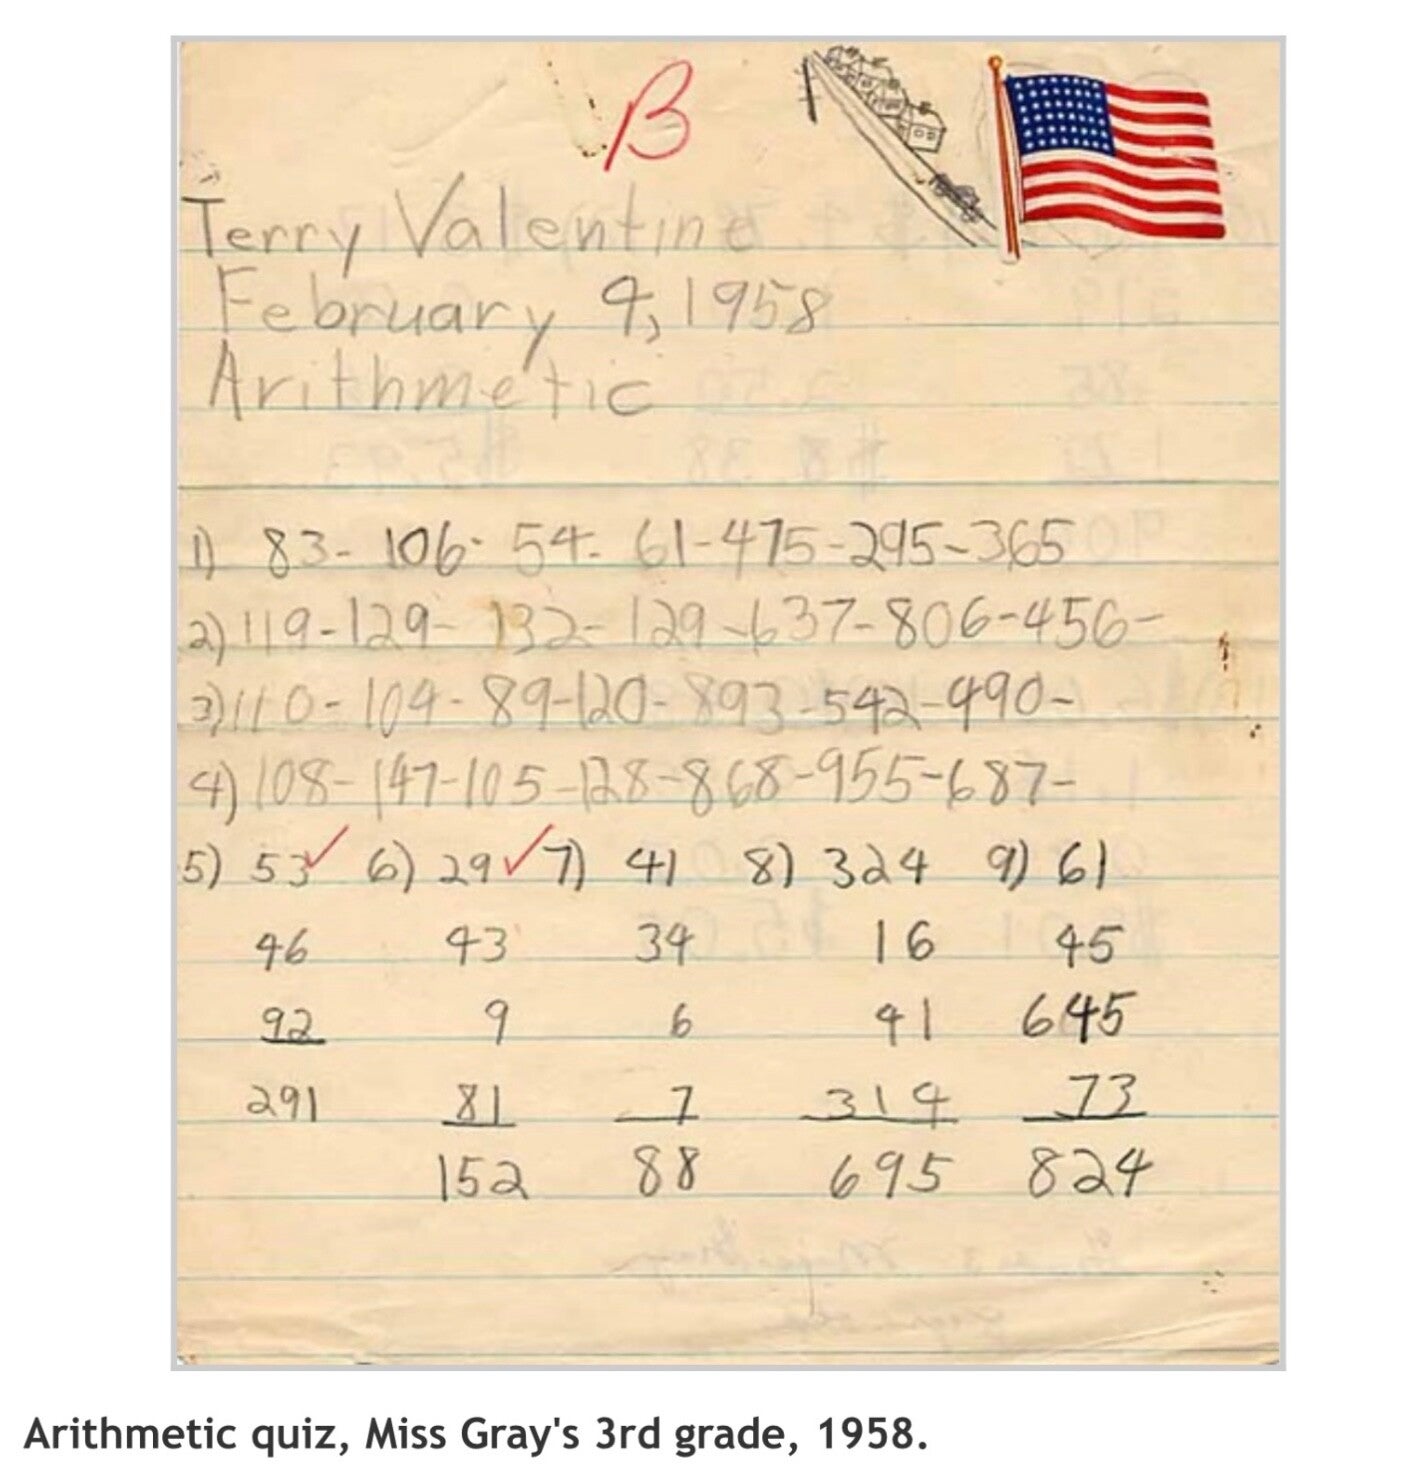 B
Terry Valentine
February 4, 1958
Arithmetic
1) 83- 106- 54- 61-475-295-365
2) 119-129- 132- 129-637-806-456-
3) 110-104-89-120-893-542-490-
4) 108-147-105-128-868-955-687-
5) 53 6) 29 7) 41 8) 324 9) 61
46 43 34 16 45
92 9 6 41 645
291 81 7 314 73
152 88 695 824
Arithmetic quiz, Miss Gray's 3rd grade, 1958.